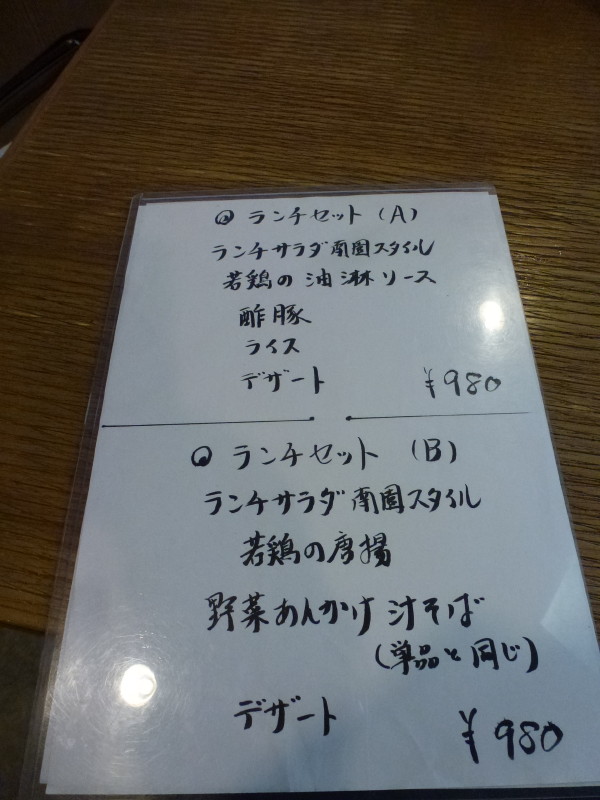 ランチセット (A)
ランチサラダ南園スタイル
若鶏の油淋ソース
酢豚
ライス
デザート ¥980
ランチセット (B)
ランチサラダ南園スタイル
若鶏の唐揚
野菜あんかけ汁そば
(単品と同じ)
デザート ¥980